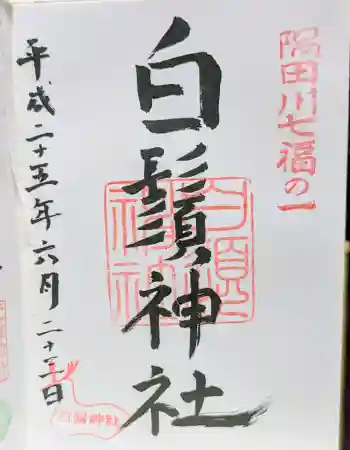 隅田川七福の一
白鬚神社
平成二十五年六月二十三日
白鬚神社